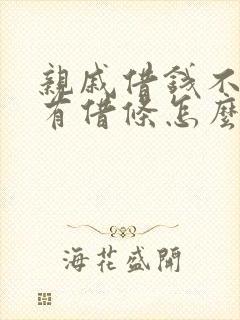 親戚借錢不
有借條怎麼
海花盛開